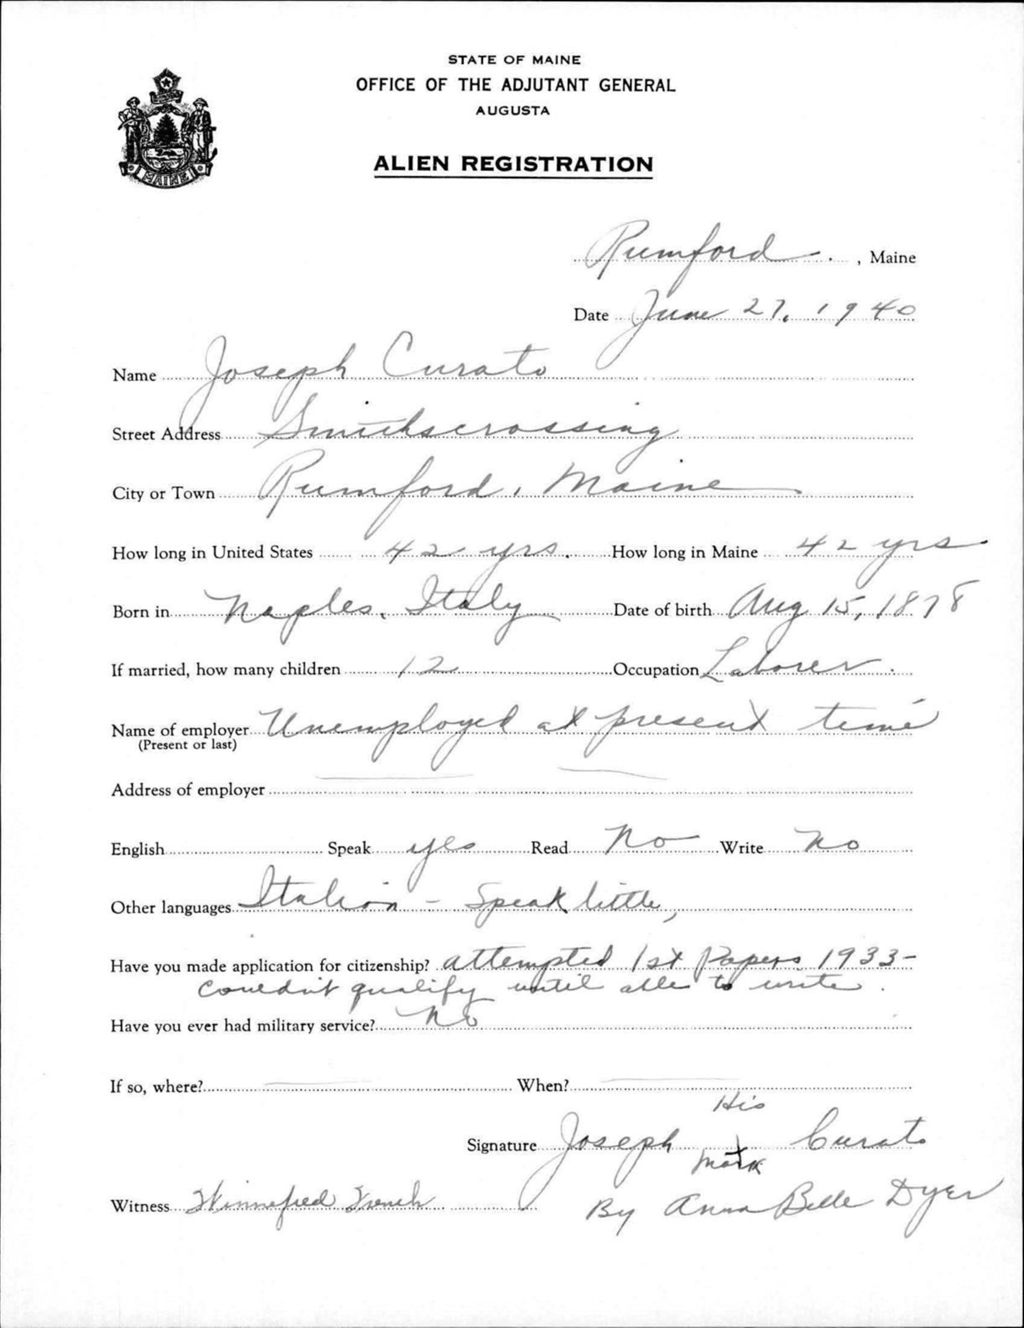 STATE OF MAINE
OFFICE OF THE ADJUTANT GENERAL
AUGUSTA
ALIEN REGISTRATION
MAINE
Rumford, Maine
Date June 27, 1940
Name Joseph Curato
Street Address Smithscrossing
City or Town Rumford, Maine
How long in United States 42 yrs. How long in Maine 42 yrs
Born in Naples, Italy Date of birth Aug 15, 1878
If married, how many children 12 Occupation Laborer.
Name of employer Unemployed at present time
(Present or last)
Address of employer
English Speak yes Read No Write No
Other languages Italian - Speak little,
Have you made application for citizenship? attempted 1st Papers 1933-
couldn't qualify until able to write.
Have you ever had military service? No
If so, where? When?
His
Signature Joseph x Curato
mark
Witness Winnefred French By Anna Belle Dyer